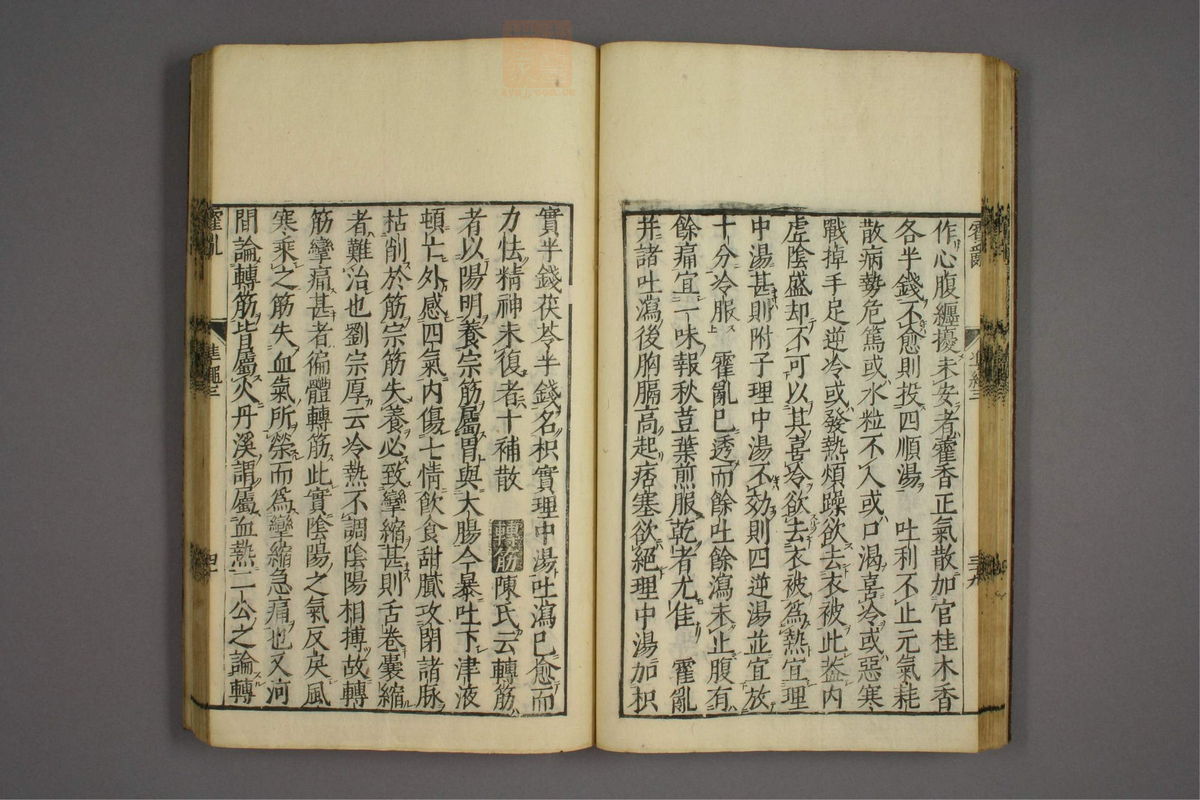 作心腹纒擾未安者藿香正氣散加官桂木香
各半錢不愈則投四順湯　吐利不止元氣耗
散病勢危篤或水粒不入或口渴喜冷或惡寒
戰掉手足逆冷或發熱煩躁欲去衣被此葢内
虚陰盛却不可以其喜冷欲去衣被爲熱宜理
中湯甚則附子理中湯不効則四逆湯並宜放
十分冷服　霍亂已透而餘吐餘瀉未止腹有
餘痛宜一味報秋荳葉煎服乾者尤佳　霍亂
并諸吐瀉後胸膈高起痞塞欲絕理中湯加枳
實半錢茯苓半錢名枳實理中湯吐瀉已愈而
力怯精神未復者十補散　轉筋陳氏云轉筋
者以陽明養宗筋屬胃與大腸今暴吐下津液
頓亡外感四氣内傷七情飲食甜膩攻閉諸脉
拈削於筋宗筋失養必致攣縮甚則舌卷囊縮
者難治也劉宗厚云冷熱不調陰陽相搏故轉
筋攣痛甚者徧體轉筋此實陰陽之氣反戾風
寒乘之筋失血氣所榮而爲攣縮急痛也又河
間論轉筋皆屬火丹溪謂屬血熱二公之論轉
霍亂
準繩三
四十